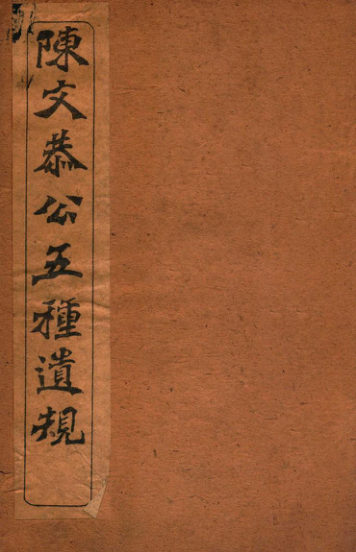 陳文恭公五種遺規